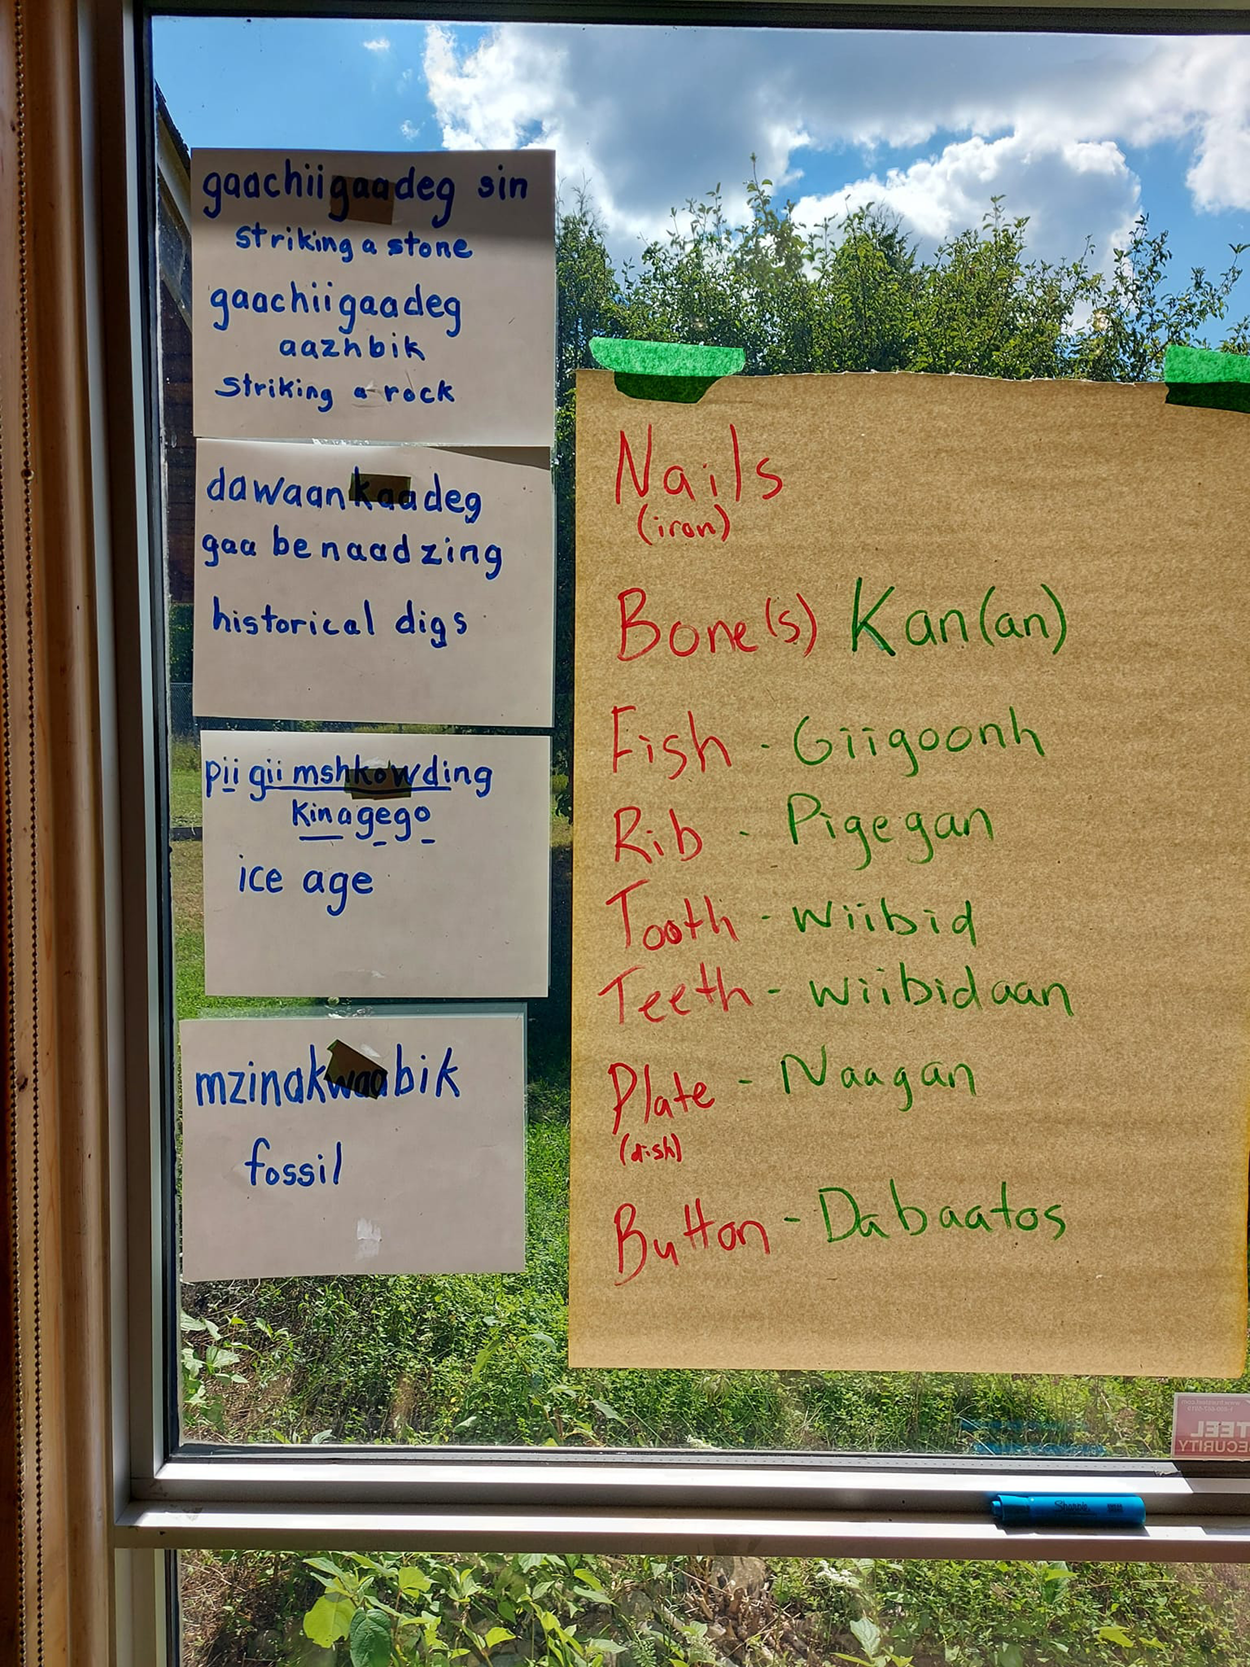 gaachiigaadeg sin
striking a stone
gaachiigaadeg
aazhbik
striking a rock
dawaankaadeg
gaa be naadzing
historical digs
pii gii mshkowding
kinagego
ice age
mzinakwaabik
fossil
Nails
(iron)
Bone(s) Kan(an)
Fish - Giigoonh
Rib - Pigegan
Tooth - wiibid
Teeth - wiibidaan
Plate - Naagan
(dish)
Button - Dabaatos
TEEL
ECURITY
Sharpie